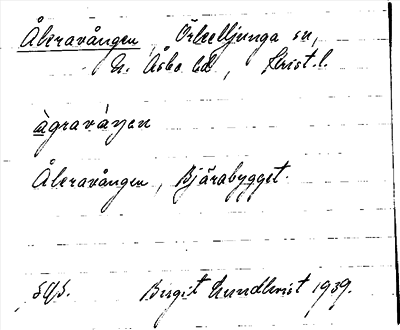 Åkravången, Örkelljunga sn,
N. Åsbo hd, Krist. l.
àgravàŋen
Åkravången, Bjärabygget.
Birgit Lundkvist 1939.